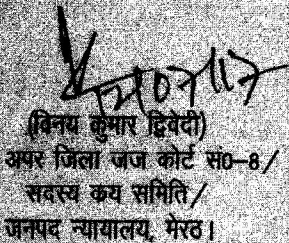 (विनय कुमार द्विवेदी)
अपर जिला जज कोर्ट सं0-8/
सदस्य कय समिति/
जनपद न्यायालय, मेरठ।